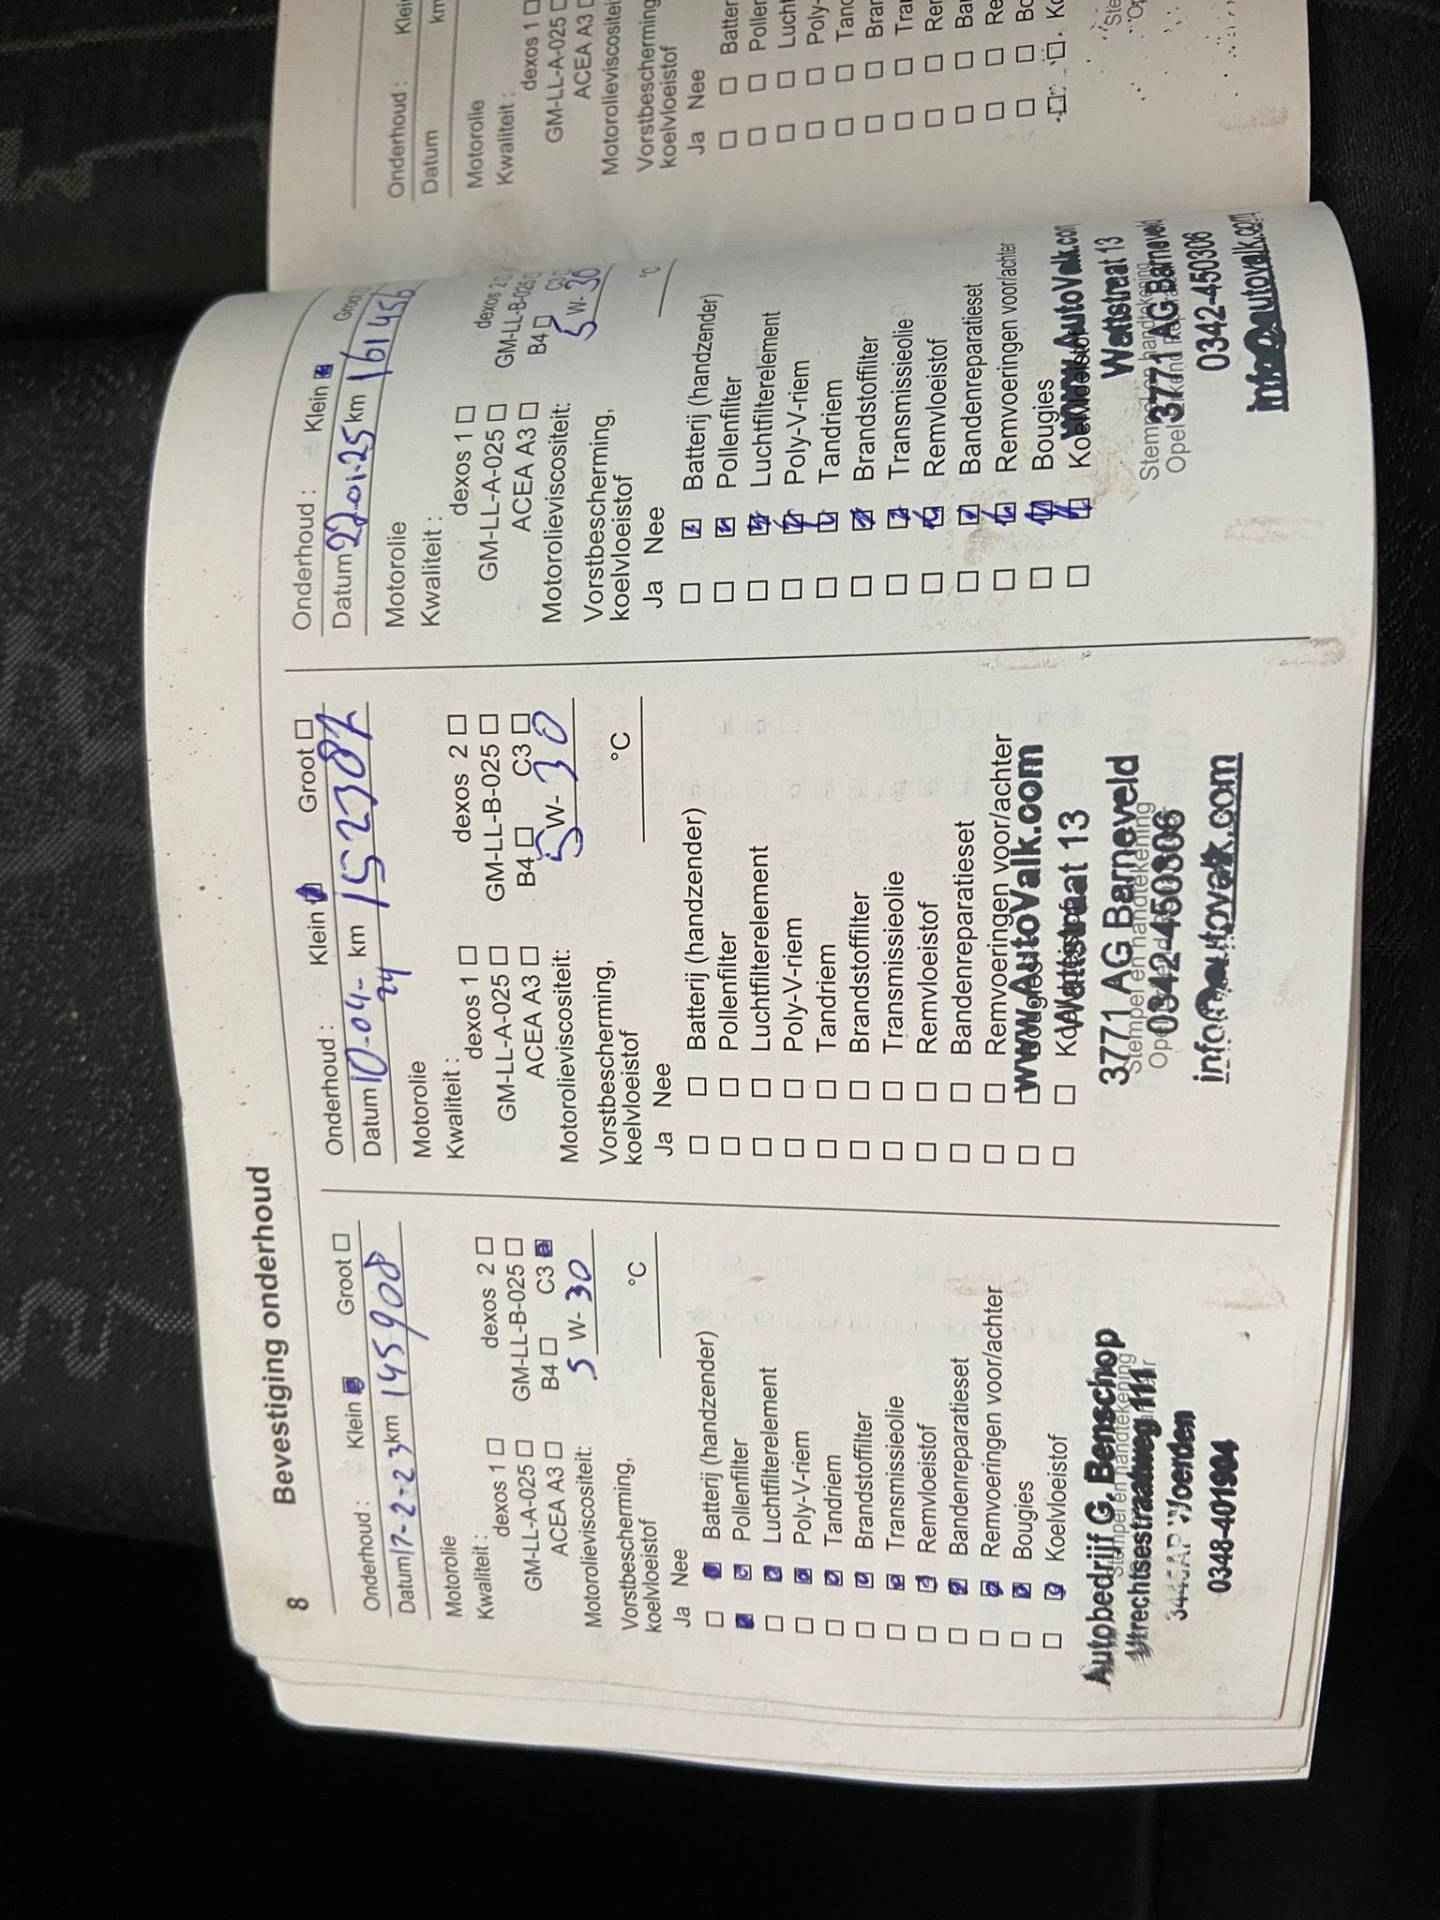 8 Bevestiging onderhoud
Onderhoud : Klein Groot
Datum 17-2-23 km 145908
Motorolie
Kwaliteit :
dexos 1 dexos 2
GM-LL-A-025 GM-LL-B-025
ACEA A3 B4 C3
Motorolieviscositeit: 5 W- 30
Vorstbescherming,
koelvloeistof °C
Ja Nee
Batterij (handzender)
Pollenfilter
Luchtfilterelement
Poly-V-riem
Tandriem
Brandstoffilter
Transmissieolie
Remvloeistof
Bandenreparatieset
Remvoeringen voor/achter
Bougies
Koelvloeistof
Autobedrijf G. Benschop
Stempel en handtekening
Utrechtsestraatweg 111
Woerden
0348-401904
Onderhoud : Klein Groot
Datum 10-04-24 km 152387
Motorolie
Kwaliteit :
dexos 1 dexos 2
GM-LL-A-025 GM-LL-B-025
ACEA A3 B4 C3
Motorolieviscositeit: 5 W- 30
Vorstbescherming,
koelvloeistof °C
Ja Nee
Batterij (handzender)
Pollenfilter
Luchtfilterelement
Poly-V-riem
Tandriem
Brandstoffilter
Transmissieolie
Remvloeistof
Bandenreparatieset
Remvoeringen voor/achter
www.AutoValk.com
Wattstraat 13
3771 AG Barneveld
Stempel en handtekening
0342-450306
info@autovalk.com
Onderhoud : Klein
Datum 22-01-25 km 161456
Motorolie
Kwaliteit :
dexos 1 dexos 2
GM-LL-A-025 GM-LL-B-025
ACEA A3 B4
Motorolieviscositeit: 5 W- 30
Vorstbescherming,
koelvloeistof °C
Ja Nee
Batterij (handzender)
Pollenfilter
Luchtfilterelement
Poly-V-riem
Tandriem
Brandstoffilter
Transmissieolie
Remvloeistof
Bandenreparatieset
Remvoeringen voor/achter
Bougies
Koelvloeistof
www.AutoValk.com
Wattstraat 13
Stempel en handtekening
3771 AG Barneveld
0342-450306
info@autovalk.com
Onderhoud :
Datum km
Motorolie
Kwaliteit :
dexos 1
GM-LL-A-025
ACEA A3
Vorstbescherming
koelvloeistof
Ja Nee